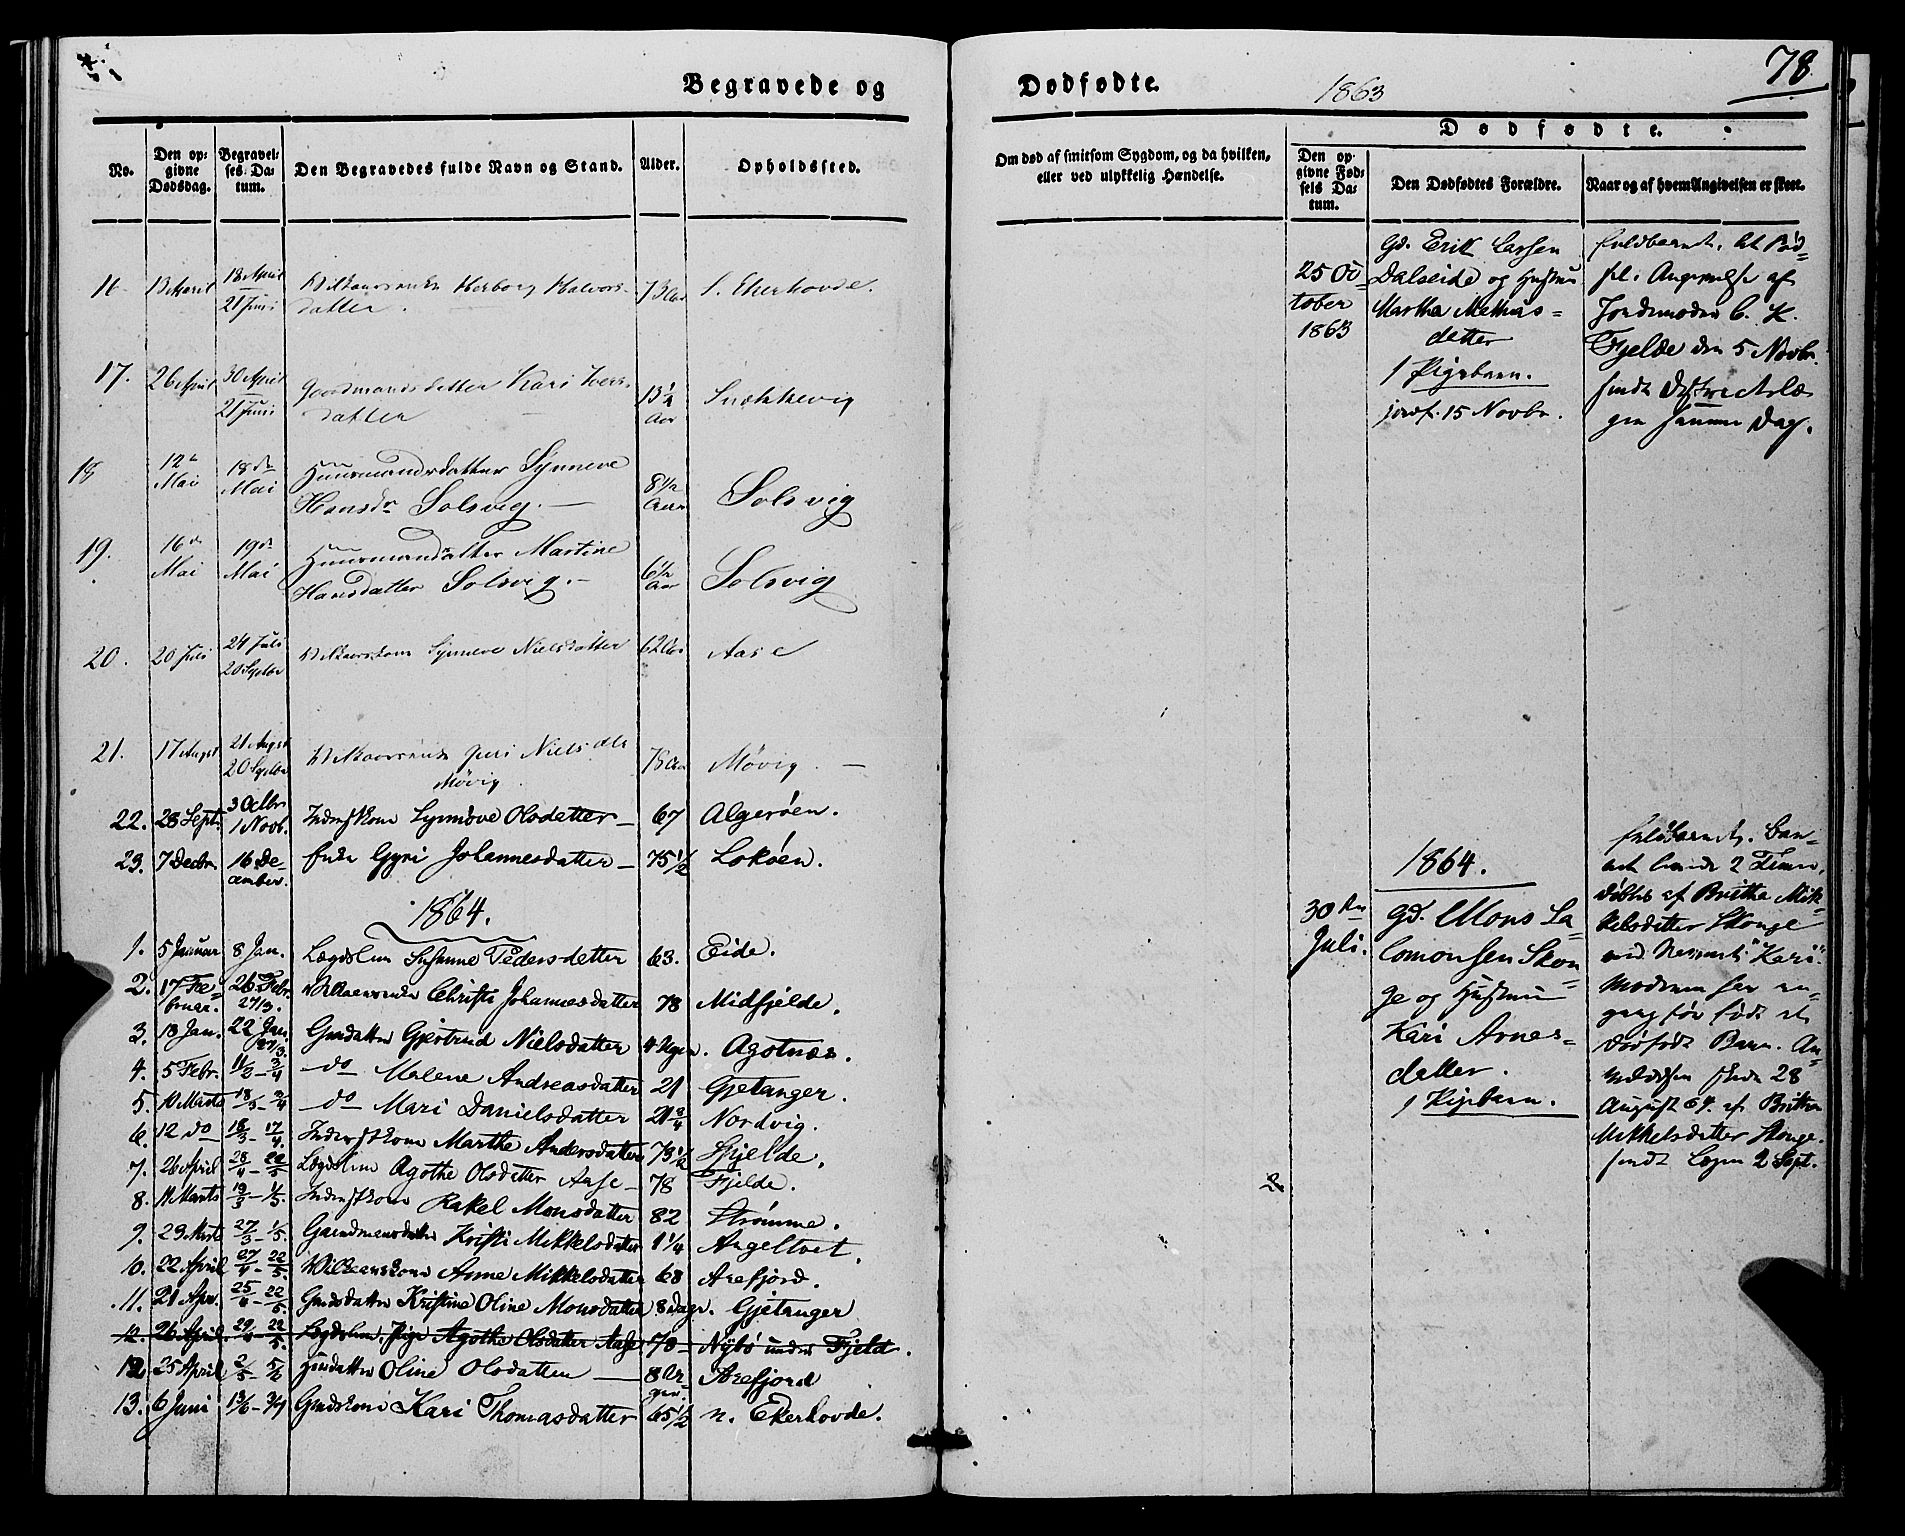 Begravede og
No.
Den op-
givne
Dødsdag.
Begravel-
ses Da-
tum.
Den Begravedes fulde Navn og Stand.
Alder.
Opholdssted.
16 13 April 18 April Herborg Halvors- 73 Aar S. Ekerhovde.
21 Juni datter.
17. 26 April 30 April Gaardmandsdatter Kari Ivers- 13 1/4 Snekkevig
21 Juni datter Aar
18 12te Mai 18de Mai Huusmandsdatter Synneve 8 1/2
Hansdr Solsvig. Aar Solsvig
19. 16de Mai 19de Mai Huusmandsdatter Martine 6 1/2
Hansdatter Solsvig. Aar Solsvig
20. 20 Juli 24 Juli Synneve Nielsdatter 62 Aar Aase
20 Septbr
21. 17 Augst 21 Augst Niels dtr Møvig.
20 Septbr Møvig
22. 28 Sept. 3 Octbr Olsdatter 67 Algerøen.
1 Novb.
23. 7 Decbr. 16 De- Enke Gyri Johannesdatter 75 1/2 Lokøen.
cember.
1864.
1. 5 Januar 8 Jan. Lægdslem Susanne Pedersdatter 63. Eide.
2. 17 Fe- 26 Febr. Christi Johannesdatter 78 Midfjelde.
bruar. 27/3.
3. 18 Jan. 22 Jan. Gjertrud Nielsdatter 4 Ugen. Agotnæs.
27/3.
4. 5 Febr. 11/3 - 3/4 do Malene Andreasdatter 21 Gjetanger.
5. 10 Marts 18/3 - 3/4 do Mari Danielsdatter 21 3/4 Nordvig.
6. 12 do 18/3 - 17/4. Marthe Andersdatter 73 1/2 Fjelde.
7. 26 April 28/4 - 22/5 Lægdslem Agothe Olsdatter Aase 78 Fjelde.
8. 11 Marts 19/3 - 1/5. Rakel Monsdatter 82 Strømme.
9. 23 Marts 27/3 - 1/5. Gaardmandsdatter Kristi Mikkelsdatter 1 1/4 Angeltvet.
10. 22 April 27/4 - 22/5. Vilkaarskone Anne Mikkelsdatter 68 Arefjord.
11. 21 Apr. 25/4 - 22/5. Kristine Oline Monsdatter 8 Dage. Gjetanger
12. 26 April. 29/4 - 22/5. Lægdslem, Pige Agothe Olsdatter Aase 78 Nybø under Fjeld.
12. 25 April 2/5 - 5/6 Oline Olsdatter 8 Arefjord
13. 6 Juni 13/6 - 3/7 Kari Thomasdatter 65 1/2 n. Ekerhovde.
Dødfødte.
1863
78.
Om død af smitsom Sygdom, og da hvilken,
eller ved ulykkelig Hændelse.
Dødfødte.
Den op-
givne Fød-
sels Da-
tum.
Den Dødfødtes Forældre.
Naar og af hvem Angivelsen er skeet.
25 Oc-
tober
1863
Gd. Erik Larsen
Dalseide og Hustru
Martha Mathias-
datter
1 Pigebarn.
jordf. 15 Novbr.
Fuldbaaret. Let Fød-
sel. Angivelse af
Jordemoder C. K.
Fjelde den 5 Novbr.
sendt Districtslæ-
gen samme Dag.
1864.
30te
Juli.
Gd. Mons Sa-
lomonsen Skon-
ge og Hustru
Kari Arnes-
datter.
1 Pigebarn.
Fuldbaaret. Bar-
net levede 2 Timer,
døbtes af Brithe Mik-
kelsdatter Skonge
med Navnet "Kari".
Moderen har en-
gang før født et
dødfødt Barn. An-
meldelsen skede 28
August 64 af Brithe
Mikkelsdatter Skonge.
sendt Lægen 2 Sept.